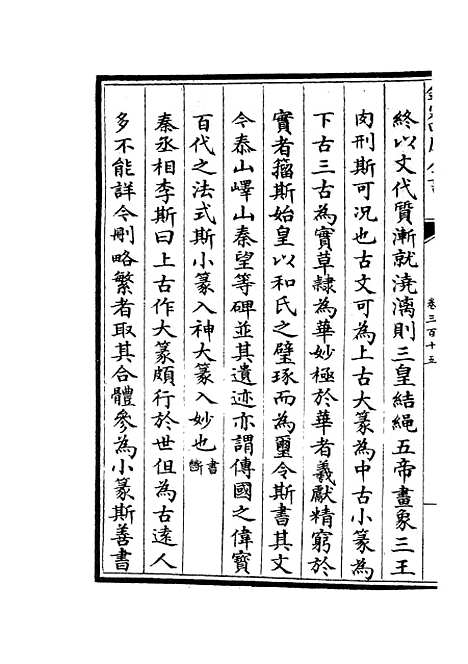 卷三百十五
終以文代質漸就澆漓則三皇結繩五帝畫象三王
肉刑斯可况也古文可為上古大篆為中古小篆為
下古三古為實草隸為華妙極於華者羲獻精窮於
實者籀斯始皇以和氏之璧琢而為璽令斯書其文
今泰山嶧山秦望等碑並其遺迹亦謂傳國之偉寶
百代之法式斯小篆入神大篆入妙也書斷
秦丞相李斯曰上古作大篆頗行於世但為古遠人
多不能詳今刪略繁者取其合體參為小篆斯善書